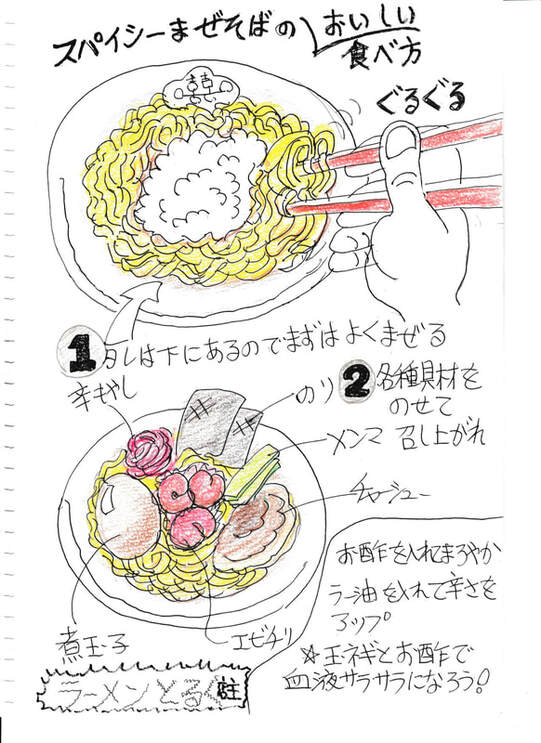 スパイシーまぜそばの
おいしい
食べ方
ぐるぐる
囍
1 タレは下にあるのでまずはよくまぜる
2 各種具材を
のせて
召し上がれ
辛もやし
のり
メンマ
チャーシュー
煮玉子
エビチリ
お酢を入れてまろやか
ラー油を入れて辛さを
アップ
☆玉ネギとお酢で
血液サラサラになろう!
ラーメンとるく